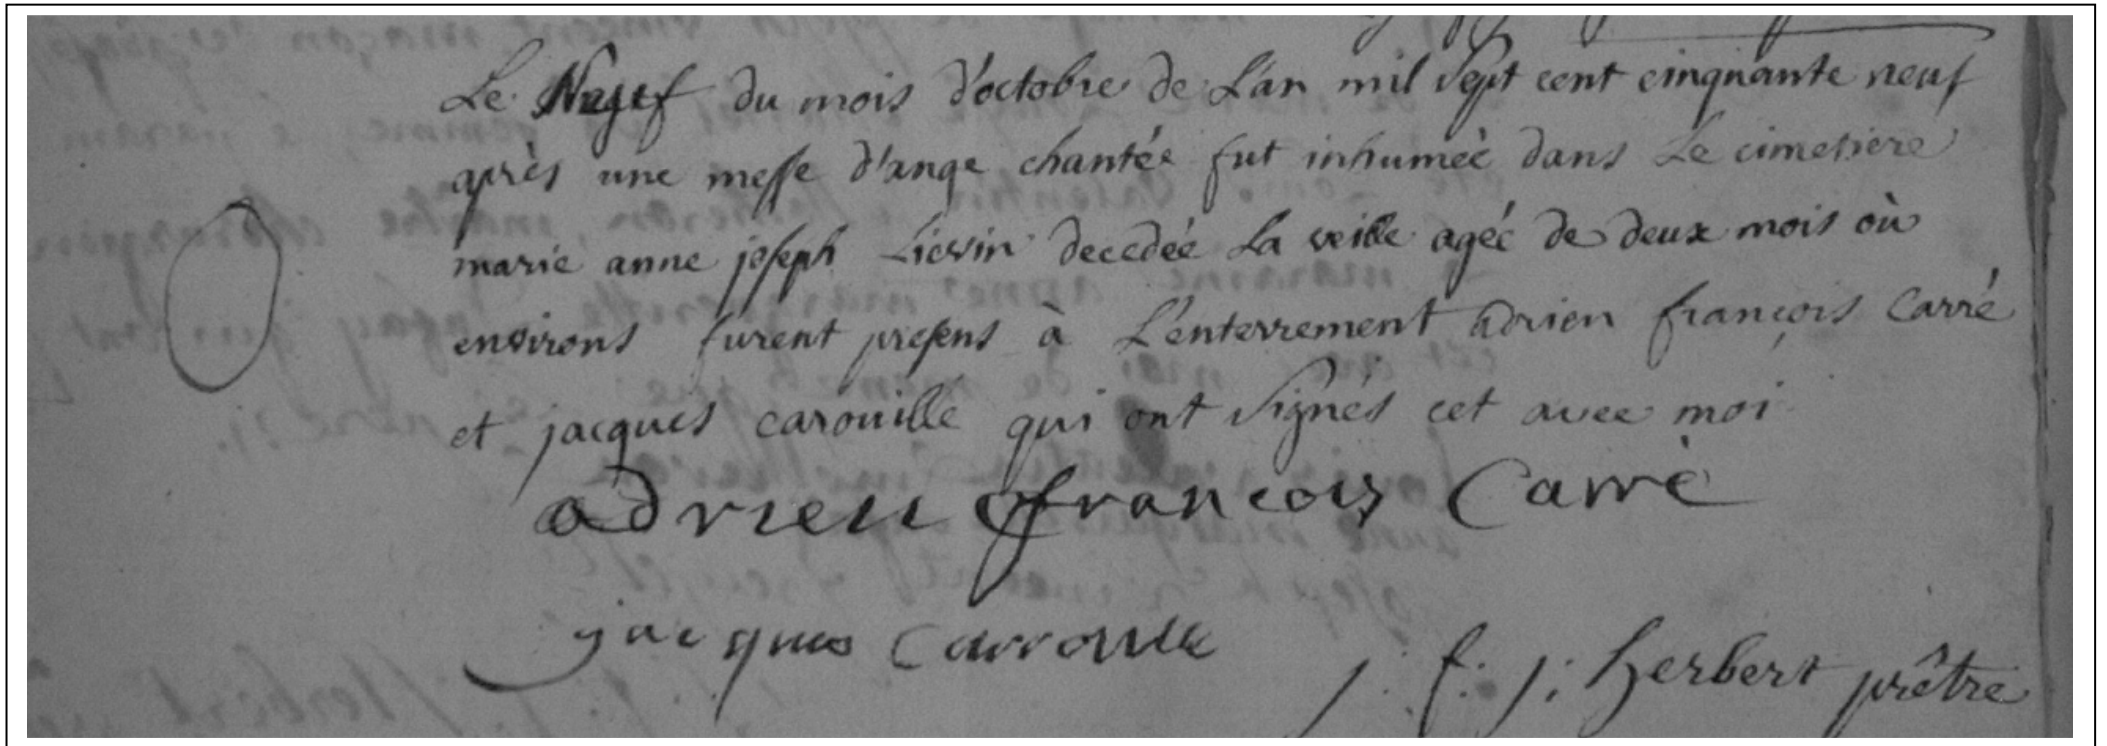 Le Neuf du mois d'octobre de L'an mil sept cent cinquante neuf
après une messe d'ange chantée fut inhumée dans Le cimetiere
marie anne joseph Lievin decedée La veille agée de deux mois où
environs furent presens à L'enterrement adrien françois Carré
et jacques carouille qui ont signés cet avec moi
adrien francois Carrè
jacques Carroulle
j: f: j: herbert prêtre